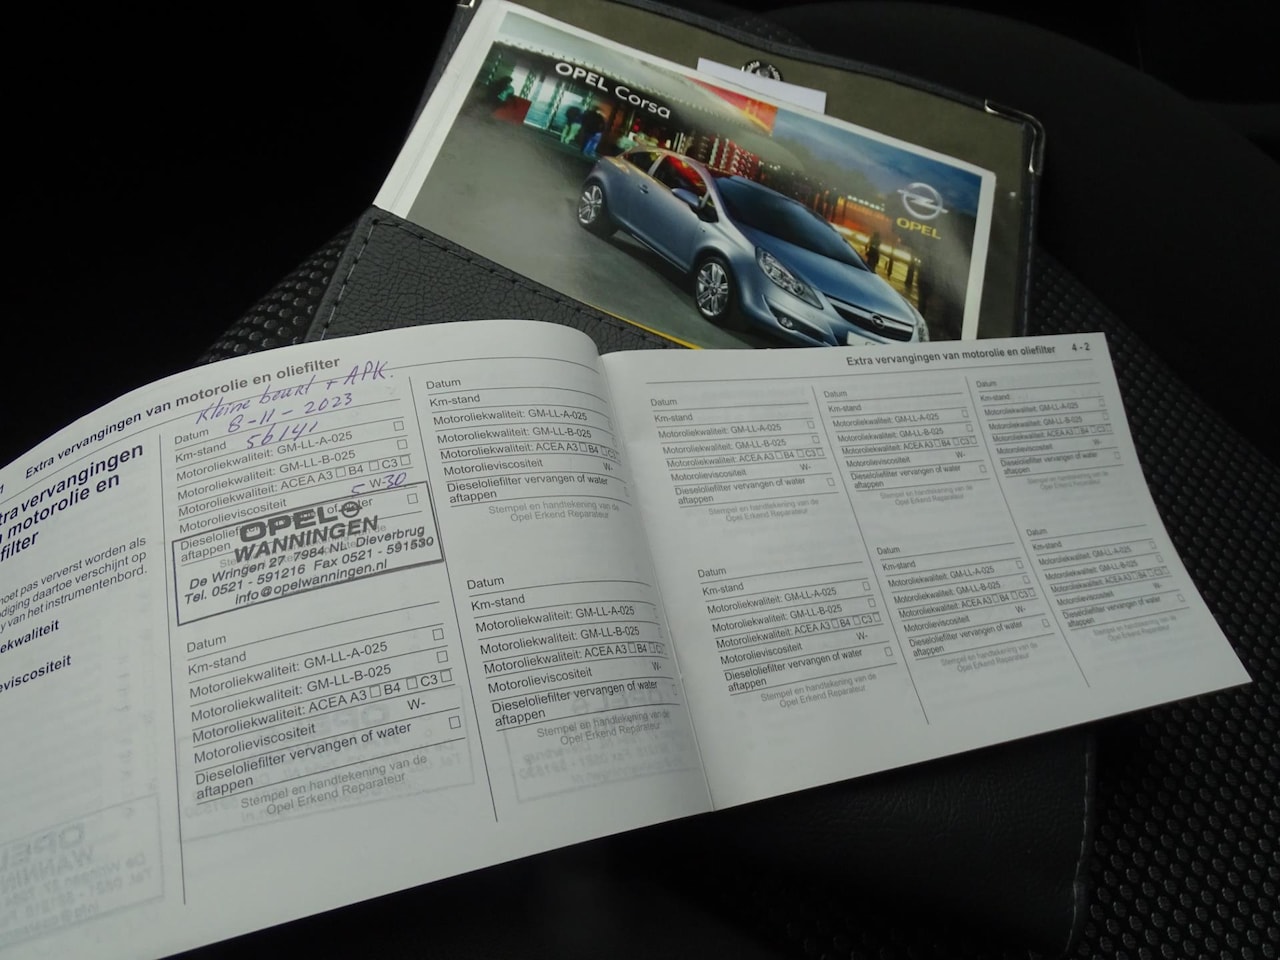 OPEL Corsa
OPEL
Extra vervangingen van motorolie en oliefilter
vervangingen
motorolie en
moet pas ververst worden als
daartoe verschijnt op
van het instrumentenbord.
Kleine beurt + APK.
Datum 8-11-2023
Km-stand 56141
Motoroliekwaliteit: GM-LL-A-025
Motoroliekwaliteit: GM-LL-B-025
Motoroliekwaliteit: ACEA A3 B4 C3
Motorolieviscositeit 5 W-30
water
aftappen
OPEL
WANNINGEN
De Wringen 27 7984 NL Dieverbrug
Tel. 0521 - 591216 Fax 0521 - 591530
info@opelwanningen.nl
Datum
Km-stand
Motoroliekwaliteit: GM-LL-A-025
Motoroliekwaliteit: GM-LL-B-025
Motoroliekwaliteit: ACEA A3 B4 C3
Motorolieviscositeit W-
Dieseloliefilter vervangen of water
aftappen
Stempel en handtekening van de
Opel Erkend Reparateur
Datum
Km-stand
Motoroliekwaliteit: GM-LL-A-025
Motoroliekwaliteit: GM-LL-B-025
Motoroliekwaliteit: ACEA A3 B4 C3
Motorolieviscositeit W-
Dieseloliefilter vervangen of water
aftappen
Stempel en handtekening van de
Opel Erkend Reparateur
Datum
Km-stand
Motoroliekwaliteit: GM-LL-A-025
Motoroliekwaliteit: GM-LL-B-025
Motoroliekwaliteit: ACEA A3 B4 C3
Motorolieviscositeit W-
Dieseloliefilter vervangen of water
aftappen
Stempel en handtekening van de
Opel Erkend Reparateur
Extra vervangingen van motorolie en oliefilter 4 - 2
Datum
Km-stand
Motoroliekwaliteit: GM-LL-A-025
Motoroliekwaliteit: GM-LL-B-025
Motoroliekwaliteit: ACEA A3 B4 C3
Motorolieviscositeit W-
Dieseloliefilter vervangen of water
aftappen
Stempel en handtekening van de
Opel Erkend Reparateur
Datum
Km-stand
Motoroliekwaliteit: GM-LL-A-025
Motoroliekwaliteit: GM-LL-B-025
Motoroliekwaliteit: ACEA A3 B4 C3
Motorolieviscositeit W-
Dieseloliefilter vervangen of water
aftappen
Stempel en handtekening van de
Opel Erkend Reparateur
Datum
Km-stand
Motoroliekwaliteit: GM-LL-A-025
Motoroliekwaliteit: GM-LL-B-025
Motoroliekwaliteit: ACEA A3 B4 C3
Motorolieviscositeit W-
Dieseloliefilter vervangen of water
aftappen
Stempel en handtekening van de
Opel Erkend Reparateur
Datum
Km-stand
Motoroliekwaliteit: GM-LL-A-025
Motoroliekwaliteit: GM-LL-B-025
Motoroliekwaliteit: ACEA A3 B4 C3
Motorolieviscositeit W-
Dieseloliefilter vervangen of water
aftappen
Stempel en handtekening van de
Opel Erkend Reparateur
Datum
Km-stand
Motoroliekwaliteit: GM-LL-A-025
Motoroliekwaliteit: GM-LL-B-025
Motoroliekwaliteit: ACEA A3 B4 C3
Motorolieviscositeit W-
Dieseloliefilter vervangen of water
aftappen
Stempel en handtekening van de
Opel Erkend Reparateur
Datum
Km-stand
Motoroliekwaliteit: GM-LL-A-025
Motoroliekwaliteit: GM-LL-B-025
Motoroliekwaliteit: ACEA A3 B4 C3
Motorolieviscositeit W-
Dieseloliefilter vervangen of water
aftappen
Stempel en handtekening van de
Opel Erkend Reparateur